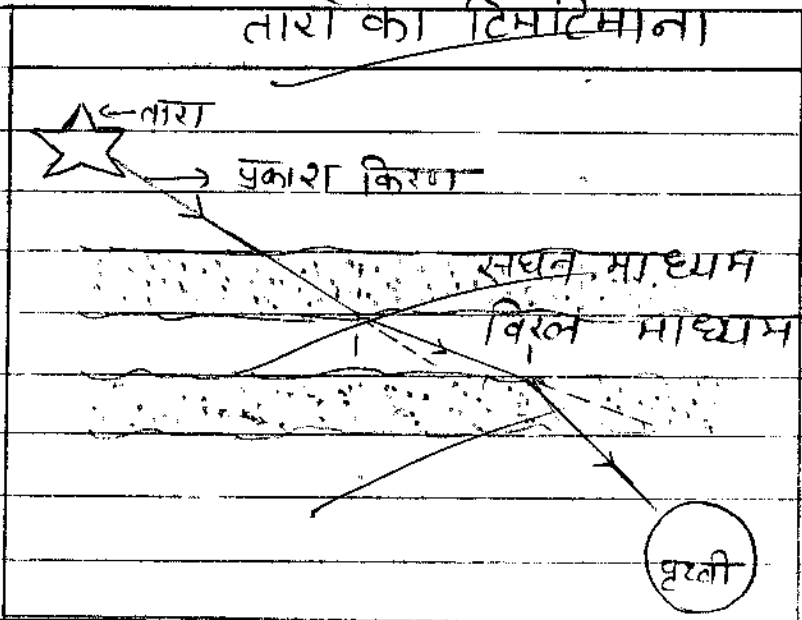 तारों का टिमटिमाना
तारा
प्रकाश किरण
सघन माध्यम
विरल माध्यम
पृथ्वी